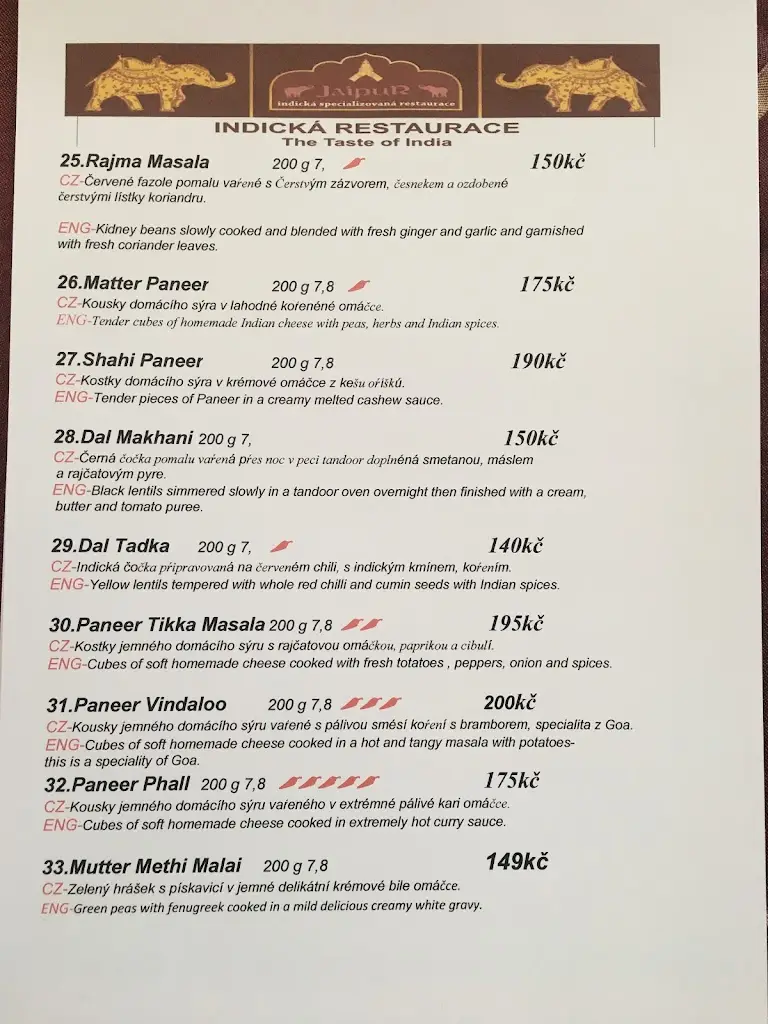 JaipuR
indická specializovaná restaurace
INDICKÁ RESTAURACE
The Taste of India
25.Rajma Masala 200 g 7, 150kč
CZ-Červené fazole pomalu vařené s Čerstvým zázvorem, česnekem a ozdobené
čerstvými lístky koriandru.
ENG-Kidney beans slowly cooked and blended with fresh ginger and garlic and garnished
with fresh coriander leaves.
26.Matter Paneer 200 g 7,8 175kč
CZ-Kousky domácího sýra v lahodné kořeněné omáčce.
ENG-Tender cubes of homemade Indian cheese with peas, herbs and Indian spices.
27.Shahi Paneer 200 g 7,8 190kč
CZ-Kostky domácího sýra v krémové omáčce z kešu oříšků.
ENG-Tender pieces of Paneer in a creamy melted cashew sauce.
28.Dal Makhani 200 g 7, 150kč
CZ-Černá čočka pomalu vařená přes noc v peci tandoor doplněná smetanou, máslem
a rajčatovým pyre.
ENG-Black lentils simmered slowly in a tandoor oven overnight then finished with a cream,
butter and tomato puree.
29.Dal Tadka 200 g 7, 140kč
CZ-Indická čočka připravovaná na červeném chili, s indickým kmínem, kořením.
ENG-Yellow lentils tempered with whole red chilli and cumin seeds with Indian spices.
30.Paneer Tikka Masala 200 g 7,8 195kč
CZ-Kostky jemného domácího sýru s rajčatovou omáčkou, paprikou a cibulí.
ENG-Cubes of soft homemade cheese cooked with fresh totatoes , peppers, onion and spices.
31.Paneer Vindaloo 200 g 7,8 200kč
CZ-Kousky jemného domácího sýru vařené s pálivou směsí koření s bramborem, specialita z Goa.
ENG-Cubes of soft homemade cheese cooked in a hot and tangy masala with potatoes-
this is a speciality of Goa.
32.Paneer Phall 200 g 7,8 175kč
CZ-Kousky jemného domácího sýru vařeného v extrémné pálivé kari omáčce.
ENG-Cubes of soft homemade cheese cooked in extremely hot curry sauce.
33.Mutter Methi Malai 200 g 7,8 149kč
CZ-Zelený hrášek s pískavicí v jemné delikátní krémové bile omáčce.
ENG-Green peas with fenugreek cooked in a mild delicious creamy white gravy.